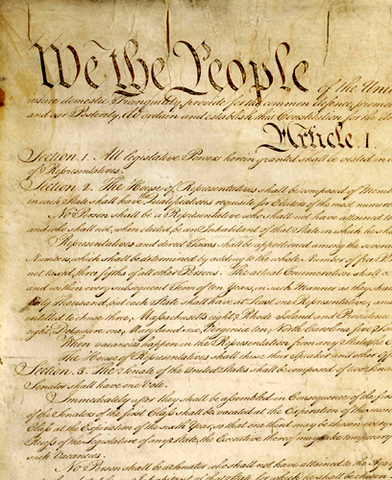 We the People of the Unit
insure domestic Tranquility, provide for the common defence, promo
and our Posterity, do ordain and establish this Constitution for the Un
Article. I.
Section. 1. All legislative Powers herein granted shall be vested in a
of Representatives.
Section. 2. The House of Representatives shall be composed of Mem
in each State shall have Qualifications requisite for Electors of the most numerou
No Person shall be a Representative who shall not have attained
and who shall not, when elected, be an Inhabitant of that State in which he sh
Representatives and direct Taxes shall be apportioned among the sever
Numbers, which shall be determined by adding to the whole Number of free P
not taxed, three fifths of all other Persons. The actual Enumeration shall b
and within every subsequent Term of ten Years, in such Manner as they sha
thirty Thousand, but each State shall have at Least one Representative; an
entitled to chuse three, Massachusetts eight, Rhode Island and Providence
eight, Delaware one, Maryland six, Virginia ten, North Carolina five, S
When vacancies happen in the Representation from any State, the E
The House of Representatives shall chuse their Speaker and other O
Section. 3. The Senate of the United States shall be composed of two Sena
Senator shall have one Vote.
Immediately after they shall be assembled in Consequence of the firs
of the Senators of the first Class shall be vacated at the Expiration of the seco
Class at the Expiration of the sixth Year, so that one third may be chosen every
Recess of the Legislature of any State, the Executive thereof may make tempora
such Vacancies.
No Person shall be a Senator who shall not have attained to the Age o
not, when elected, be an Inhabitant of that State for which he shall be chosen